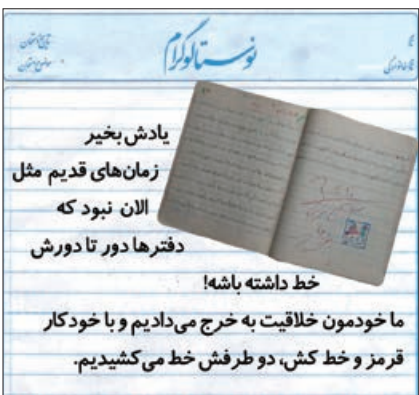 نوستالوگرام
یادش بخیر
زمان‌های قدیم مثل
الان نبود که
دفترها دور تا دورش
خط داشته باشه!
ما خودمون خلاقیت به خرج می‌دادیم و با خودکار
قرمز و خط کش، دو طرفش خط می‌کشیدیم.